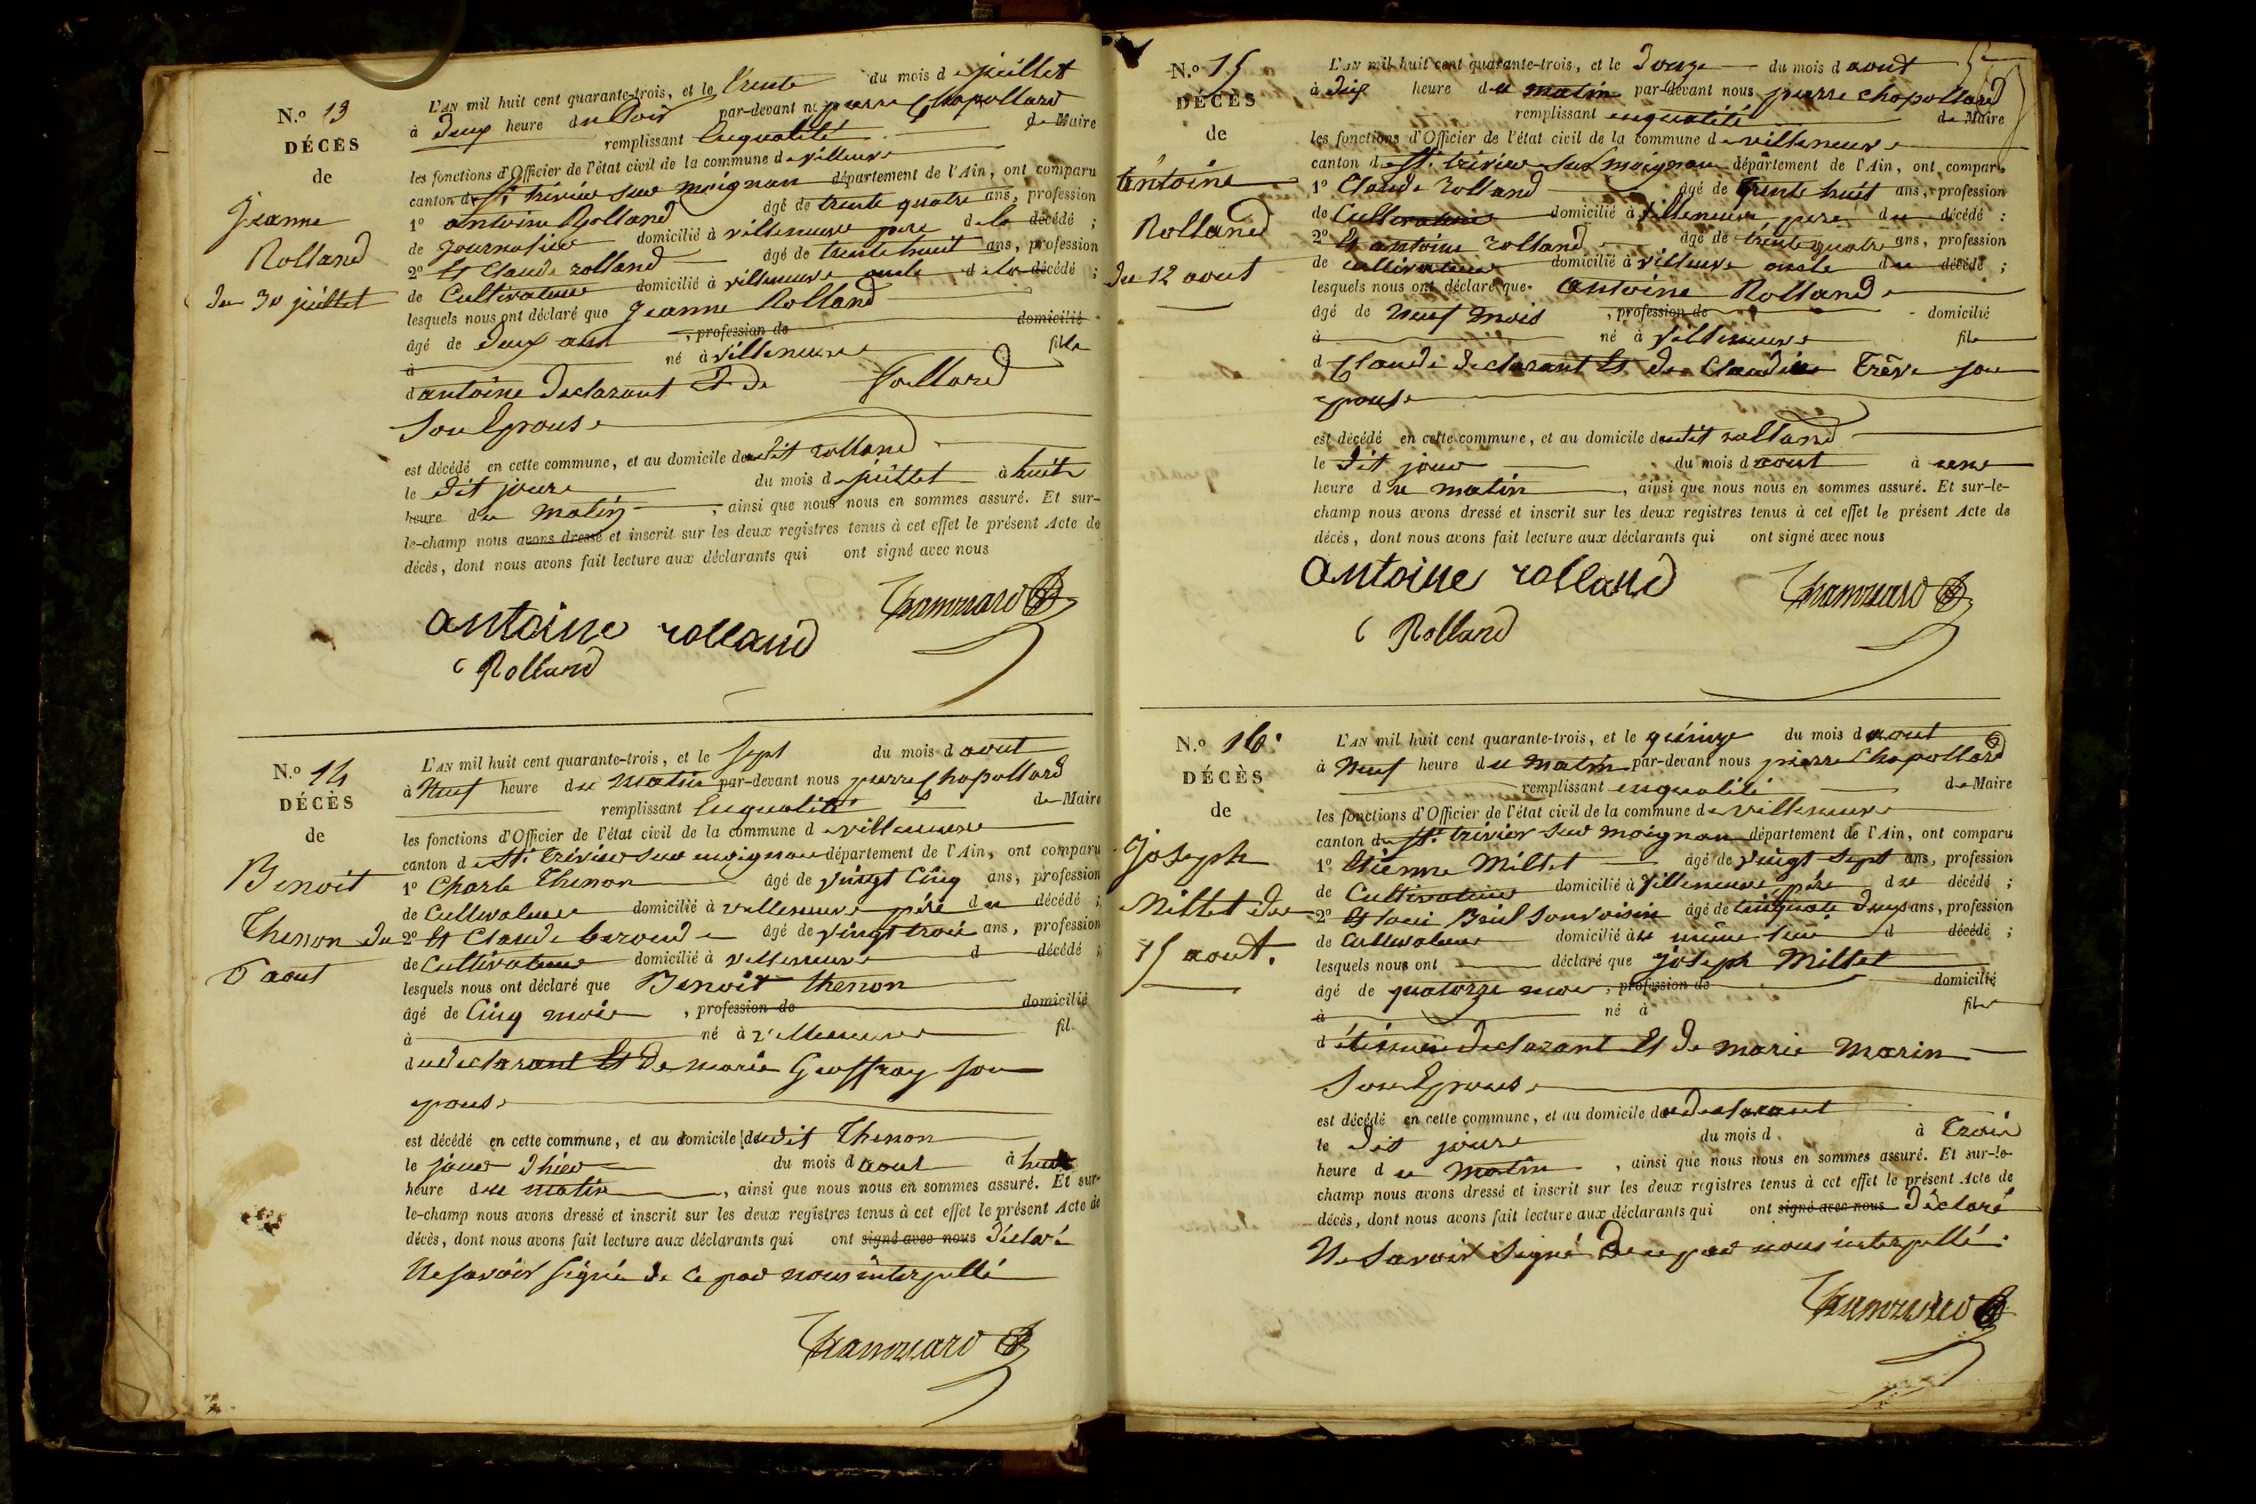 N.o 13
DÉCÈS
de
Jeanne
Rolland
du 30 juillet
L'AN mil huit cent quarante-trois, et le trente du mois de juillet
à deux heure du soir par-devant nous pierre Chapollard
remplissant Enqualité de Maire
les fonctions d'Officier de l'état civil de la commune de villeneuve
canton de St. trivier sur moignan département de l'Ain, ont comparu
1o antoine Rolland âgé de trente quatre ans, profession
de journalier domicilié à villeneuve pere de la décédé ;
2o Et Claude rolland âgé de trente huit ans, profession
de Cultivateur domicilié à villeneuve oncle de la décédé ;
lesquels nous ont déclaré que Jeanne Rolland
âgé de deux ans , profession de domicilié
à né à villeneuve fille
d antoine declarant Et de Gaillard
Son Epouse
est décédé en cette commune, et au domicile dudit rolland
le dit jour du mois de juillet à huit
heure du matin , ainsi que nous nous en sommes assuré. Et sur-
le-champ nous avons dressé et inscrit sur les deux registres tenus à cet effet le présent Acte de
décès, dont nous avons fait lecture aux déclarants qui ont signé avec nous
antoine rolland
C Rolland
N.o 14
DÉCÈS
de
Benoit
Thenon du
6 aout
L'AN mil huit cent quarante-trois, et le sept du mois d aout
à Neuf heure du matin par-devant nous pierre Chapollard
remplissant Enqualité de Maire
les fonctions d'Officier de l'état civil de la commune de villeneuve
canton de St. trivier sur moignan département de l'Ain, ont comparu
1o Charle Thenon âgé de vingt Cinq ans, profession
de Cultivateur domicilié à villeneuve père du décédé ;
2o Et Claude beroud âgé de vingt trois ans, profession
de Cultivateur domicilié à villeneuve d décédé ;
lesquels nous ont déclaré que Benoit thenon
âgé de Cinq mois , profession de domicilié
à né à villeneuve fil
du declarant Et de marie Geoffray son
epouse
est décédé en cette commune, et au domicile dudit Thenon
le jour d'hier du mois d aout à huit
heure du matin , ainsi que nous nous en sommes assuré. Et sur-
le-champ nous avons dressé et inscrit sur les deux registres tenus à cet effet le présent Acte de
décès, dont nous avons fait lecture aux déclarants qui ont signé avec nous déclaré
Ne savoir signé de ce par nous interpellé
N.o 15
DÉCÈS
de
Antoine
Rolland
du 12 aout
L'AN mil huit cent quarante-trois, et le douze du mois d aout
à dix heure du matin par-devant nous pierre chapollard
remplissant enqualité de Maire
les fonctions d'Officier de l'état civil de la commune de villeneuve
canton de St. trivier sur moignan département de l'Ain, ont comparu
1o Claude rolland âgé de trente huit ans, profession
de Cultivateur domicilié à villeneuve pere du décédé ;
2o Et antoine rolland âgé de trente quatre ans, profession
de cultivateur domicilié à villeneuve oncle du décédé ;
lesquels nous ont déclaré que antoine Rolland
âgé de neuf mois , profession de domicilié
à né à villeneuve fil
d Claude declarant Et de Claudine Trêve son
epouse
est décédé en cette commune, et au domicile dudit rolland
le dit jour du mois d aout à une
heure du matin , ainsi que nous nous en sommes assuré. Et sur-le-
champ nous avons dressé et inscrit sur les deux registres tenus à cet effet le présent Acte de
décès, dont nous avons fait lecture aux déclarants qui ont signé avec nous
antoine rolland
C Rolland
N.o 16
DÉCÈS
de
Joseph
Millet du
15 aout.
L'AN mil huit cent quarante-trois, et le quinze du mois d aout
à Neuf heure du matin par-devant nous pierre Chapollard
remplissant enqualité de Maire
les fonctions d'Officier de l'état civil de la commune de villeneuve
canton de St. trivier sur moignan département de l'Ain, ont comparu
1o Etienne Millet âgé de vingt sept ans, profession
de Cultivateur domicilié à villeneuve père du décédé ;
2o Et âgé de cinquante deux ans, profession
de cultivateur domicilié à d décédé ;
lesquels nous ont déclaré que joseph Millet
âgé de quatorze mois , profession de domicilié
à né à fils
d étienne declarant Et de marie Marin
Son Epouse
est décédé en cette commune, et au domicile du declarant
le dit jour du mois d à trois
heure du matin , ainsi que nous nous en sommes assuré. Et sur-le-
champ nous avons dressé et inscrit sur les deux registres tenus à cet effet le présent Acte de
décès, dont nous avons fait lecture aux déclarants qui ont signé avec nous déclaré
Ne savoir signé de ce par nous interpellé.